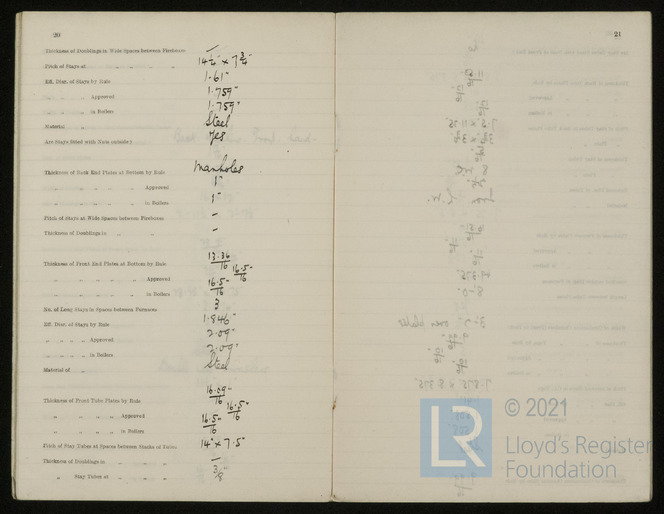 20
Thickness of Doublings in Wide Spaces between Fireboxes —
Pitch of Stays at „ „ „ „ 14¼" × 7¾"
Eff. Diar. of Stays by Rule 1.61"
„ „ „ Approved 1.759"
„ „ „ in Boilers 1.759"
Material „ „ Steel
Are Stays fitted with Nuts outside? Yes
Manholes
Thickness of Back End Plates at Bottom by Rule 1"
„ „ „ „ „ Approved
„ „ „ „ „ in Boilers 1"
Pitch of Stays at Wide Spaces between Fireboxes –
Thickness of Doublings in „ „ –
Thickness of Front End Plates at Bottom by Rule 13.36/16
„ „ „ „ „ Approved 16.5/16
„ „ „ „ „ in Boilers 16.5/16
No. of Long Stays in Spaces between Furnaces 3
Eff. Diar. of Stays by Rule 1.846"
„ „ „ Approved 2.09"
„ „ „ in Boilers 2.09"
Material of „ Steel
Thickness of Front Tube Plates by Rule 16.09/16
„ „ „ „ Approved 16.5/16
„ „ „ „ in Boilers 16.5/16
Pitch of Stay Tubes at Spaces between Stacks of Tubes 14" × 7.5"
Thickness of Doublings in „ „ „ —
„ Stay Tubes at „ „ „ 3/8"
21
© 2021
LR
Lloyd's Register
Foundation